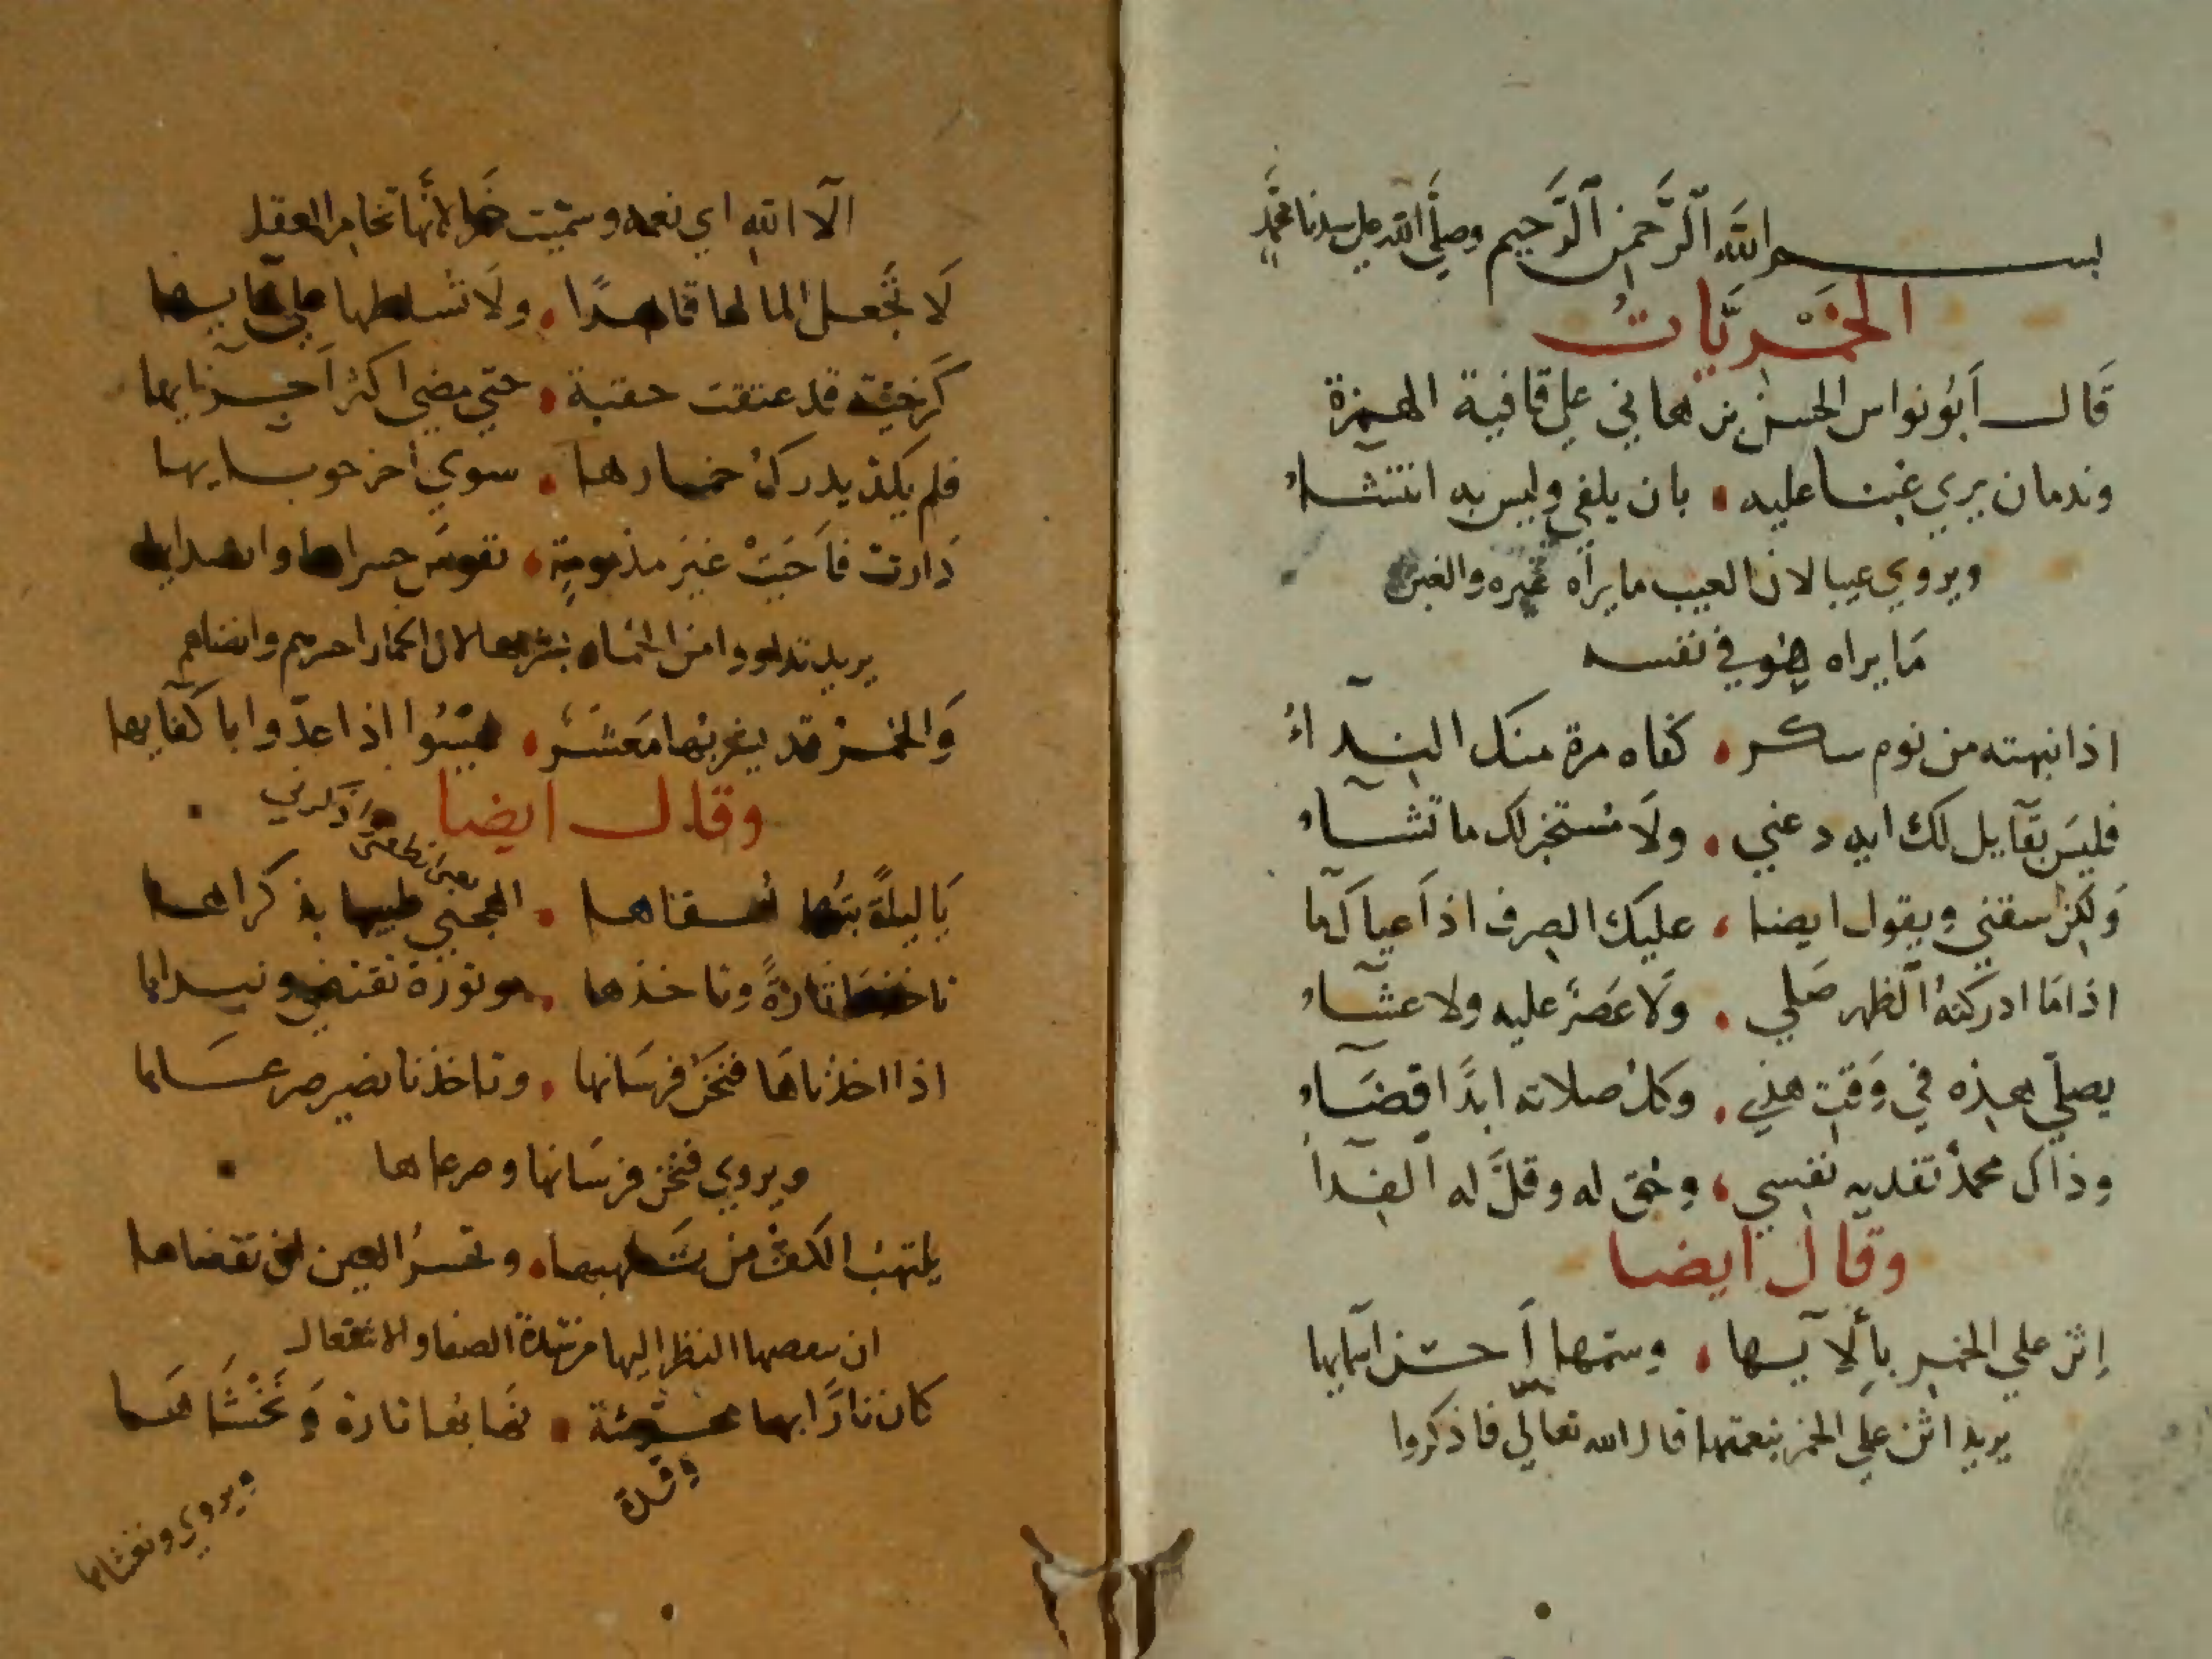 بسم الله الرحمن الرحيم وصلى الله على سيدنا محمد
الخَمْريَّاتُ
قَال أبُو نواس الحسن بن هاني علي قافية الهمزة
وندمان يري غبنا عليه ٠ بان يلفي وليس به انتشاءُ
ويروي عيبا لان العيب ما يراه غيره والغبن
مَا يراه هو في نفسه
اذا نبهته من نوم سكر ٠ كفاه مرة منك الندآءُ
فليسَ بقآيل لك ايه دعني ٠ ولَا مُستخبر لك ما تشآء
وَلكن سقني ويقول ايضا ٠ عليك الصرف اذ اعياك مآ
اذا مَا ادركته الظهر صَلي ٠ وَلا عَصرٌ عليه ولا عشآء
يصلّي هذه في وَقت هذي ٠ وكل صلاته ابدًا قضَآء
وذاك محمدٌ تفديه نفسي ٠ وحُق له وقلَّ له الفدآ
وقال ايضا
إثن علي الخمر بألآيها ٠ وسمها أحسن اسمايها
يريد اثن علي الخمر بنعمتها قال الله تعالي فاذكروا
الآ الله اي نعمه وسميت خمرا لانَّها تخامر العقل
لَا تجعل الما لها قاهرًا ٠ ولَا تسلطها علي مآيها
كَرخيَّة قد عتقت حقبة ٠ حتي مضي اكثر اَجزايها
فلم يكد يدرك خمارها ٠ سوي اخر حوبايها
دَارت فاَحيَتْ غيرَ مذمومةٍ ٠ نفوسَ حسراها وانضايها
يريد تداووا من الخمار بشربها لان الخمار احرمهم وانضاهم
وَالخمر قد يشربها مَعشَرٌ ٠ ليسُوا اذا عدّوا باكفايها
وقال ايضا
يَا ليلةً بتُّها أسقاها ٠ الهجني طيبها بذكراها
ناخذها تارةً وتاخذها ٠
اذا اخذناهَا فنحن فرسَانها ٠ وتاخذنا نصير صرعَاها
ويروي فنحن فرسَانها وصرعاها
يلتهبُ الكفُّ من تَلهبها ٠ وتحسرُ العين ان تقضاها
النظر اليها من شدة الصفا والاشتعال
كان نارًا بها محرشة ٠ نهابها تارة وَنخشَاهَا
ويروي ونغشاها